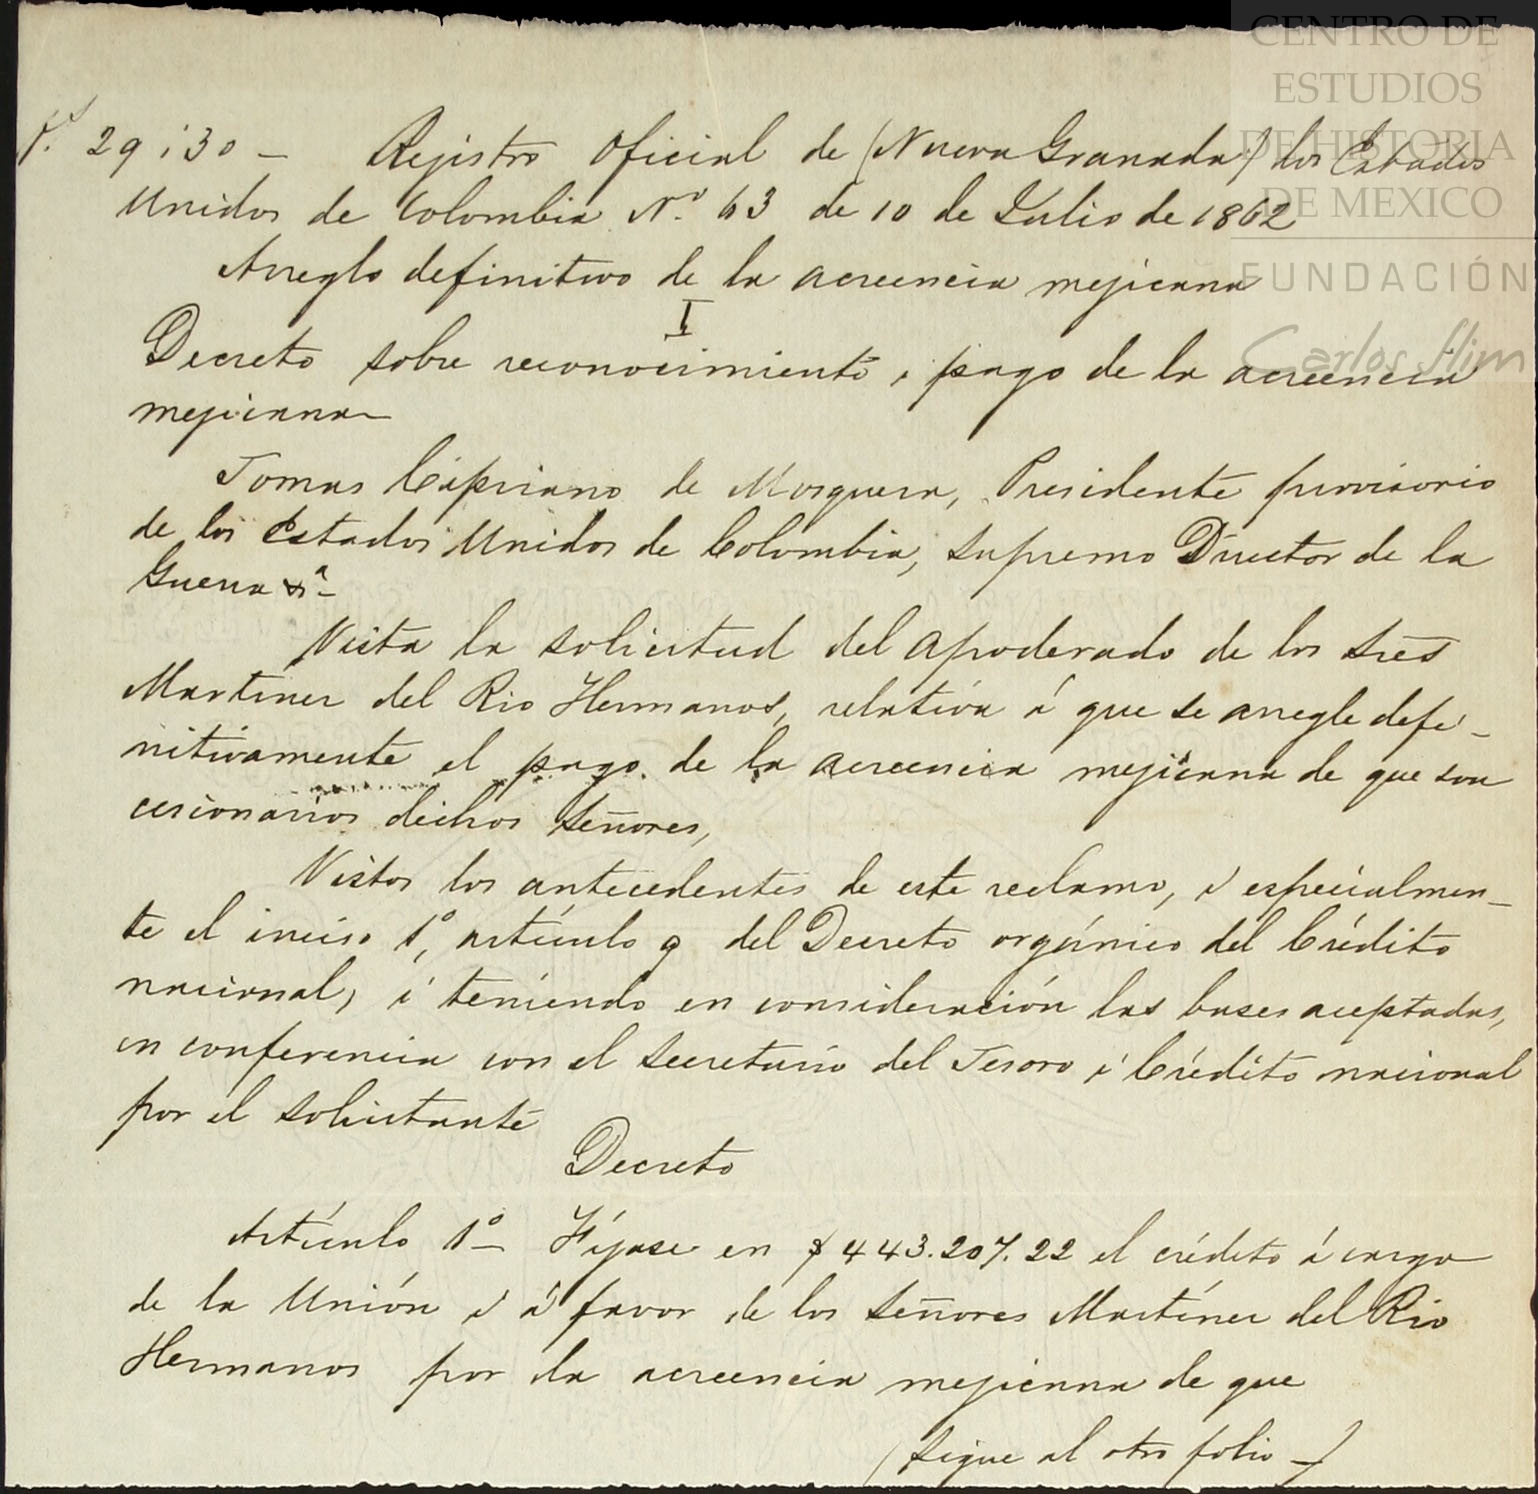 CENTRO DE
ESTUDIOS
DE HISTORIA
DE MEXICO
FUNDACIÓN
Carlos Slim
29 i 30 - Rejistro Oficial de (Nueva Granada) los Estados
Unidos de Colombia N.º 63 de 10 de Julio de 1862
Arreglo definitivo de la acreencia mejicana
I
Decreto sobre reconocimiento i pago de la acreencia
mejicana
Tomas Cipriano de Mosquera, Presidente provisorio
de los Estados Unidos de Colombia, supremo Director de la
Guerra &ª
Vista la solicitud del apoderado de los Sres
Martinez del Rio Hermanos, relativa á que se arregle defi-
nitivamente el pago de la acreencia mejicana de que son
cesionarios dichos Señores,
Vistos los antecedentes de este reclamo, i especialmen-
te el inciso 1º, artículo 9 del Decreto orgánico del Crédito
nacional, i teniendo en consideración las bases aceptadas,
en conferencia con el Secretario del Tesoro i Crédito nacional
por el solicitante
Decreto
Artículo 1º- Fíjase en $443.207.22 el crédito á cargo
de la Unión i á favor de los Señores Martínez del Rio
Hermanos por la acreencia mejicana de que
(sigue al otro folio -)